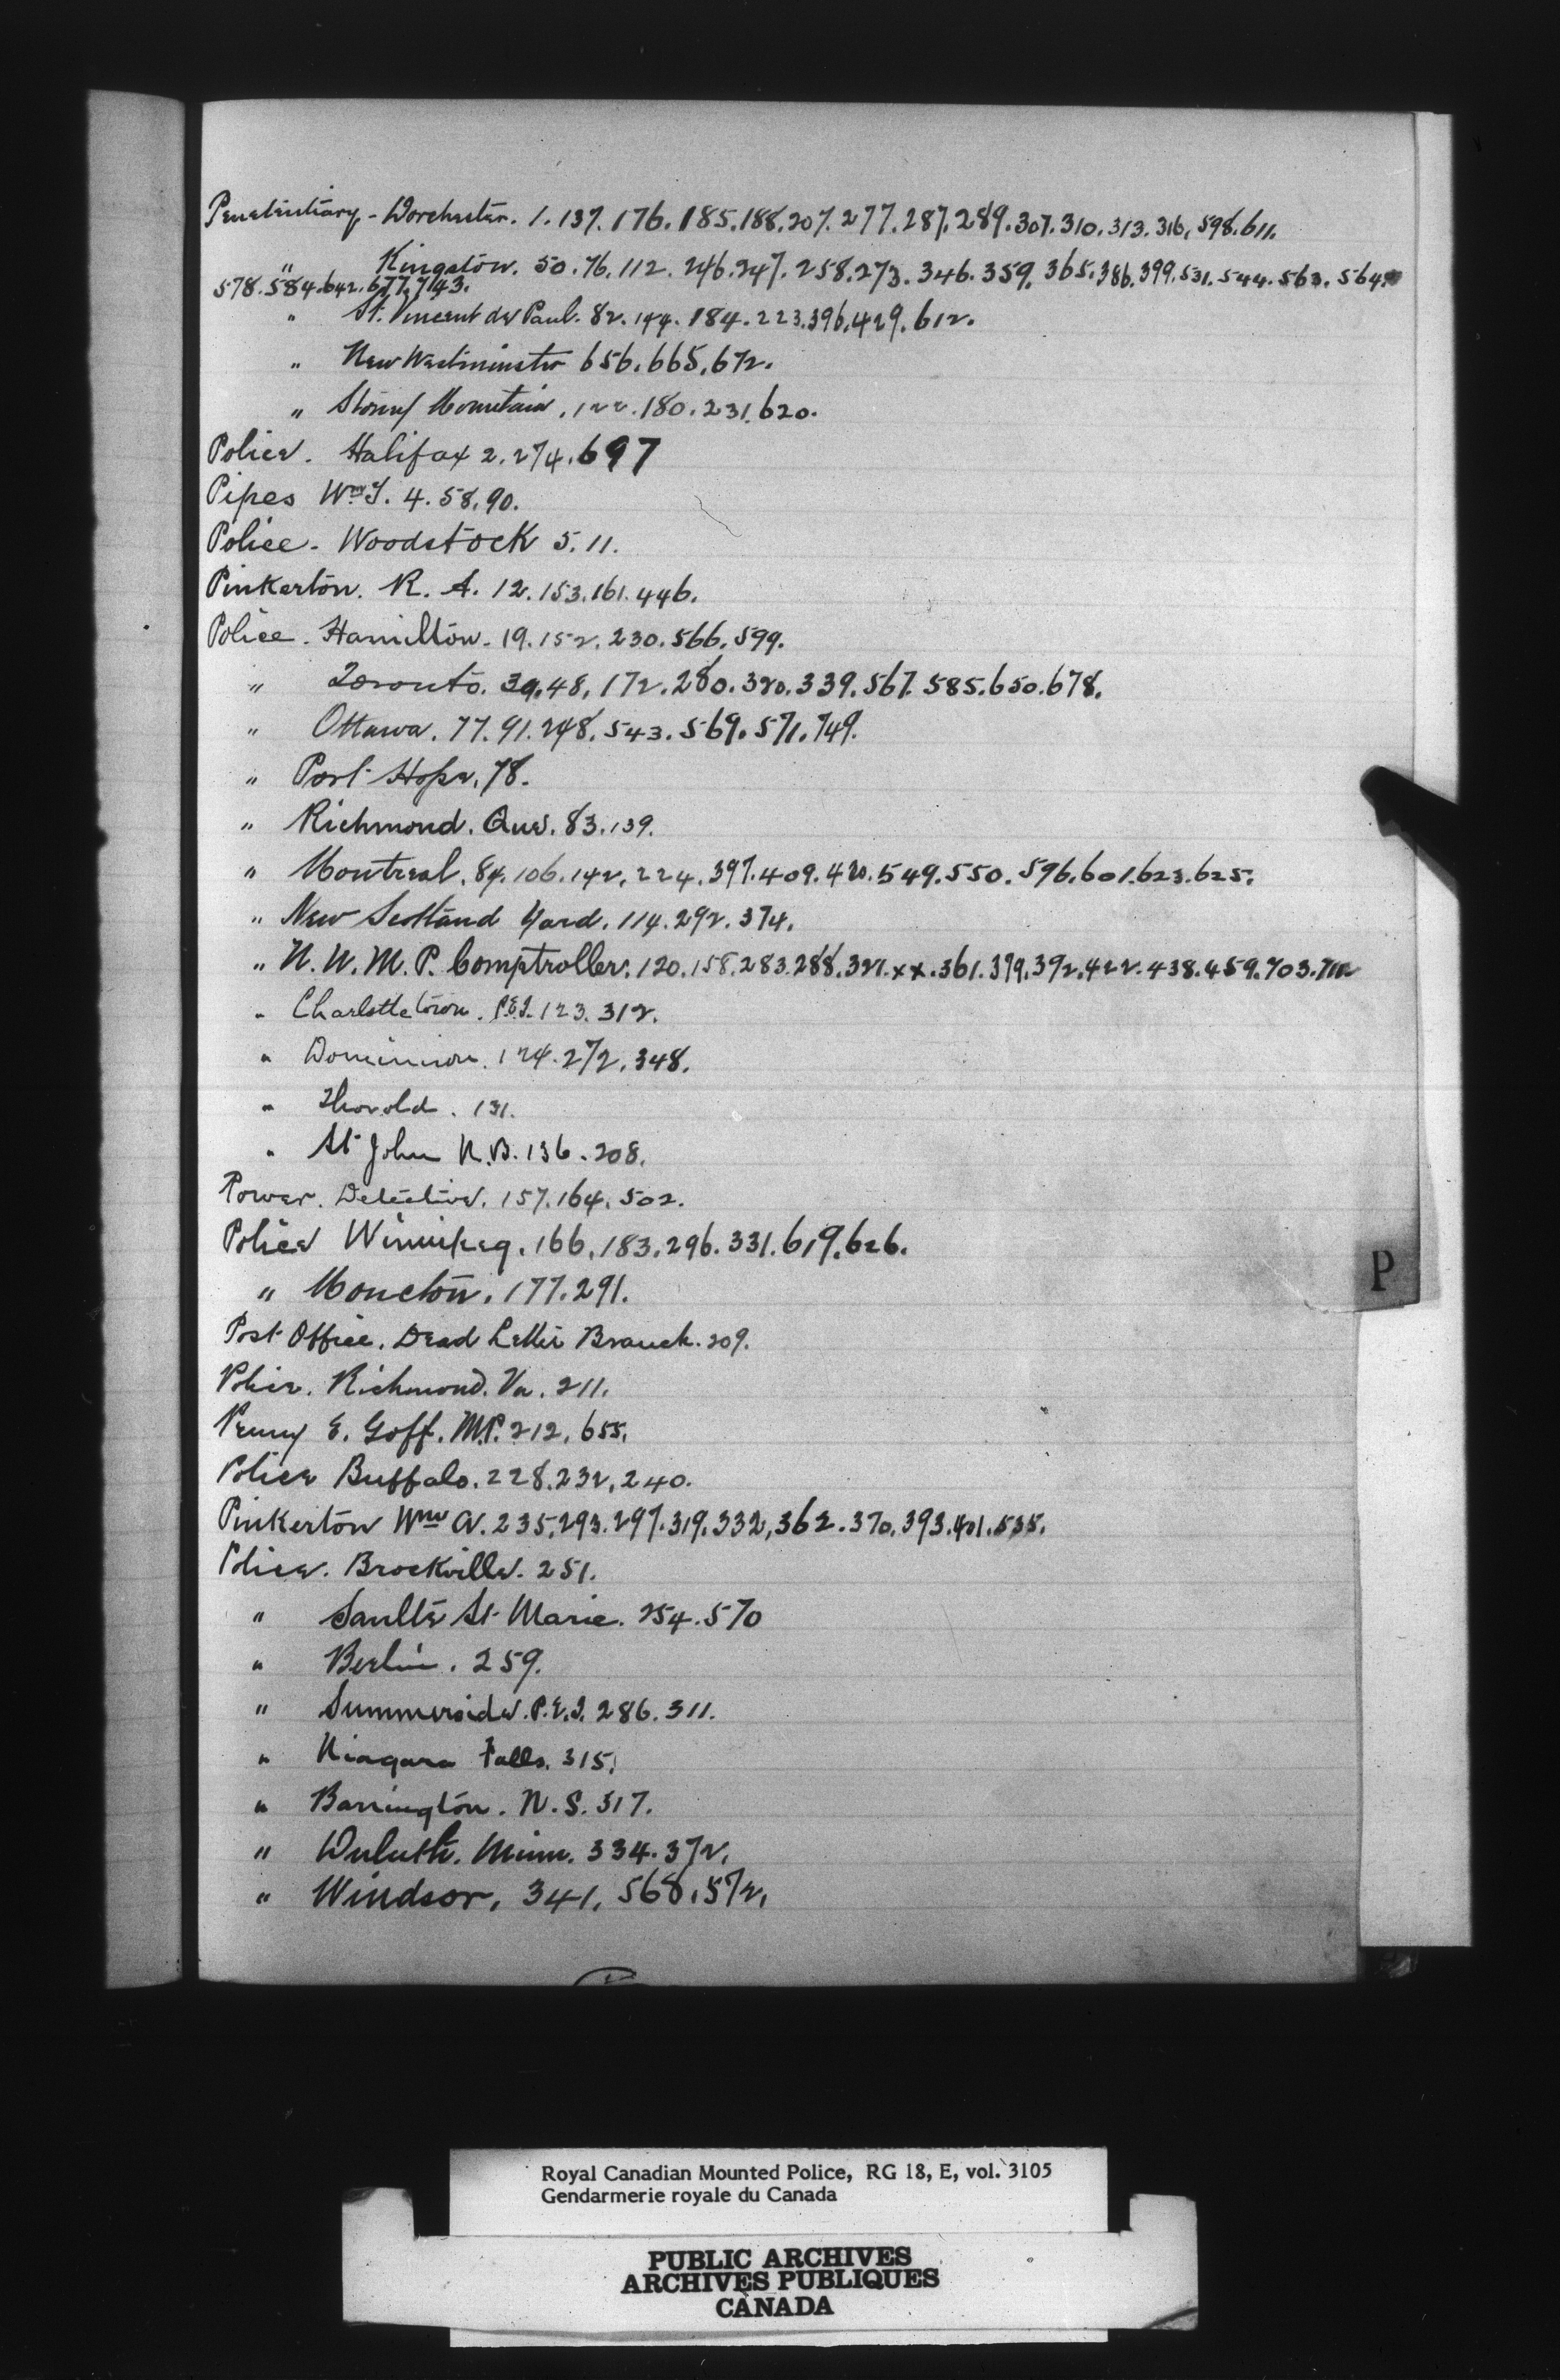 Penetentiary - Dorchester. 1. 137. 176. 185. 188. 207. 277. 287. 289. 307. 310. 313. 316. 598. 611.
" Kingston. 50. 76. 112. 246. 247. 258. 273. 346. 359. 365. 386. 399. 531. 544. 563. 564.
578. 584. 642. 677. 743.
" St. Vincent de Paul. 82. 144. 184. 223. 396. 429. 612.
" New Westminster 656. 665. 672.
" Stony Mountain. 122. 180. 231. 620.
Police. Halifax 2. 274. 697
Pipes Wm T. 4. 58. 90.
Police - Woodstock 5. 11.
Pinkerton. R. A. 12. 153. 161. 446.
Police. Hamilton. 19. 152. 230. 566. 599.
" Toronto. 39. 48. 172. 280. 320. 339. 567. 585. 650. 678.
" Ottawa. 77. 91. 248. 543. 569. 571. 749.
" Port Hope. 78.
" Richmond. Que. 83. 139.
" Montreal. 84. 106. 142. 224. 397. 409. 420. 549. 550. 596. 601. 623. 625.
" New Scotland Yard. 114. 292. 374.
" N. W. M. P. Comptroller. 120. 158. 283. 288. 321. xx. 361. 379. 392. 422. 438. 459. 703.
" Charlottetown. P.E.I. 123. 312.
" Dominion. 124. 272. 348.
" Thorold. 131.
" St John N.B. 136. 208.
Power. Detective. 157. 164. 502.
Police Winnipeg. 166. 183. 296. 331. 619. 626.
" Moncton. 177. 291.
Post Office. Dead Letter Branch. 209.
Police. Richmond. Va. 211.
Penny E. Goff. M.P. 212. 655.
Police Buffalo. 228. 232. 240.
Pinkerton Wm A. 235. 293. 297. 319. 332. 362. 370. 393. 401. 535.
Police. Brockville. 251.
" Saulte St Marie. 254. 570
" Berlin. 259.
" Summerside. P.E.I. 286. 311.
" Niagara Falls. 315.
" Barrington. N. S. 317.
" Duluth. Minn. 334. 372.
" Windsor. 341. 568. 572.
P
Royal Canadian Mounted Police, RG 18, E, vol. 3105
Gendarmerie royale du Canada
PUBLIC ARCHIVES
ARCHIVES PUBLIQUES
CANADA